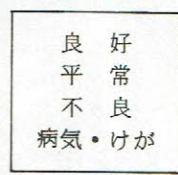 良好
平常
不良
病気・けが